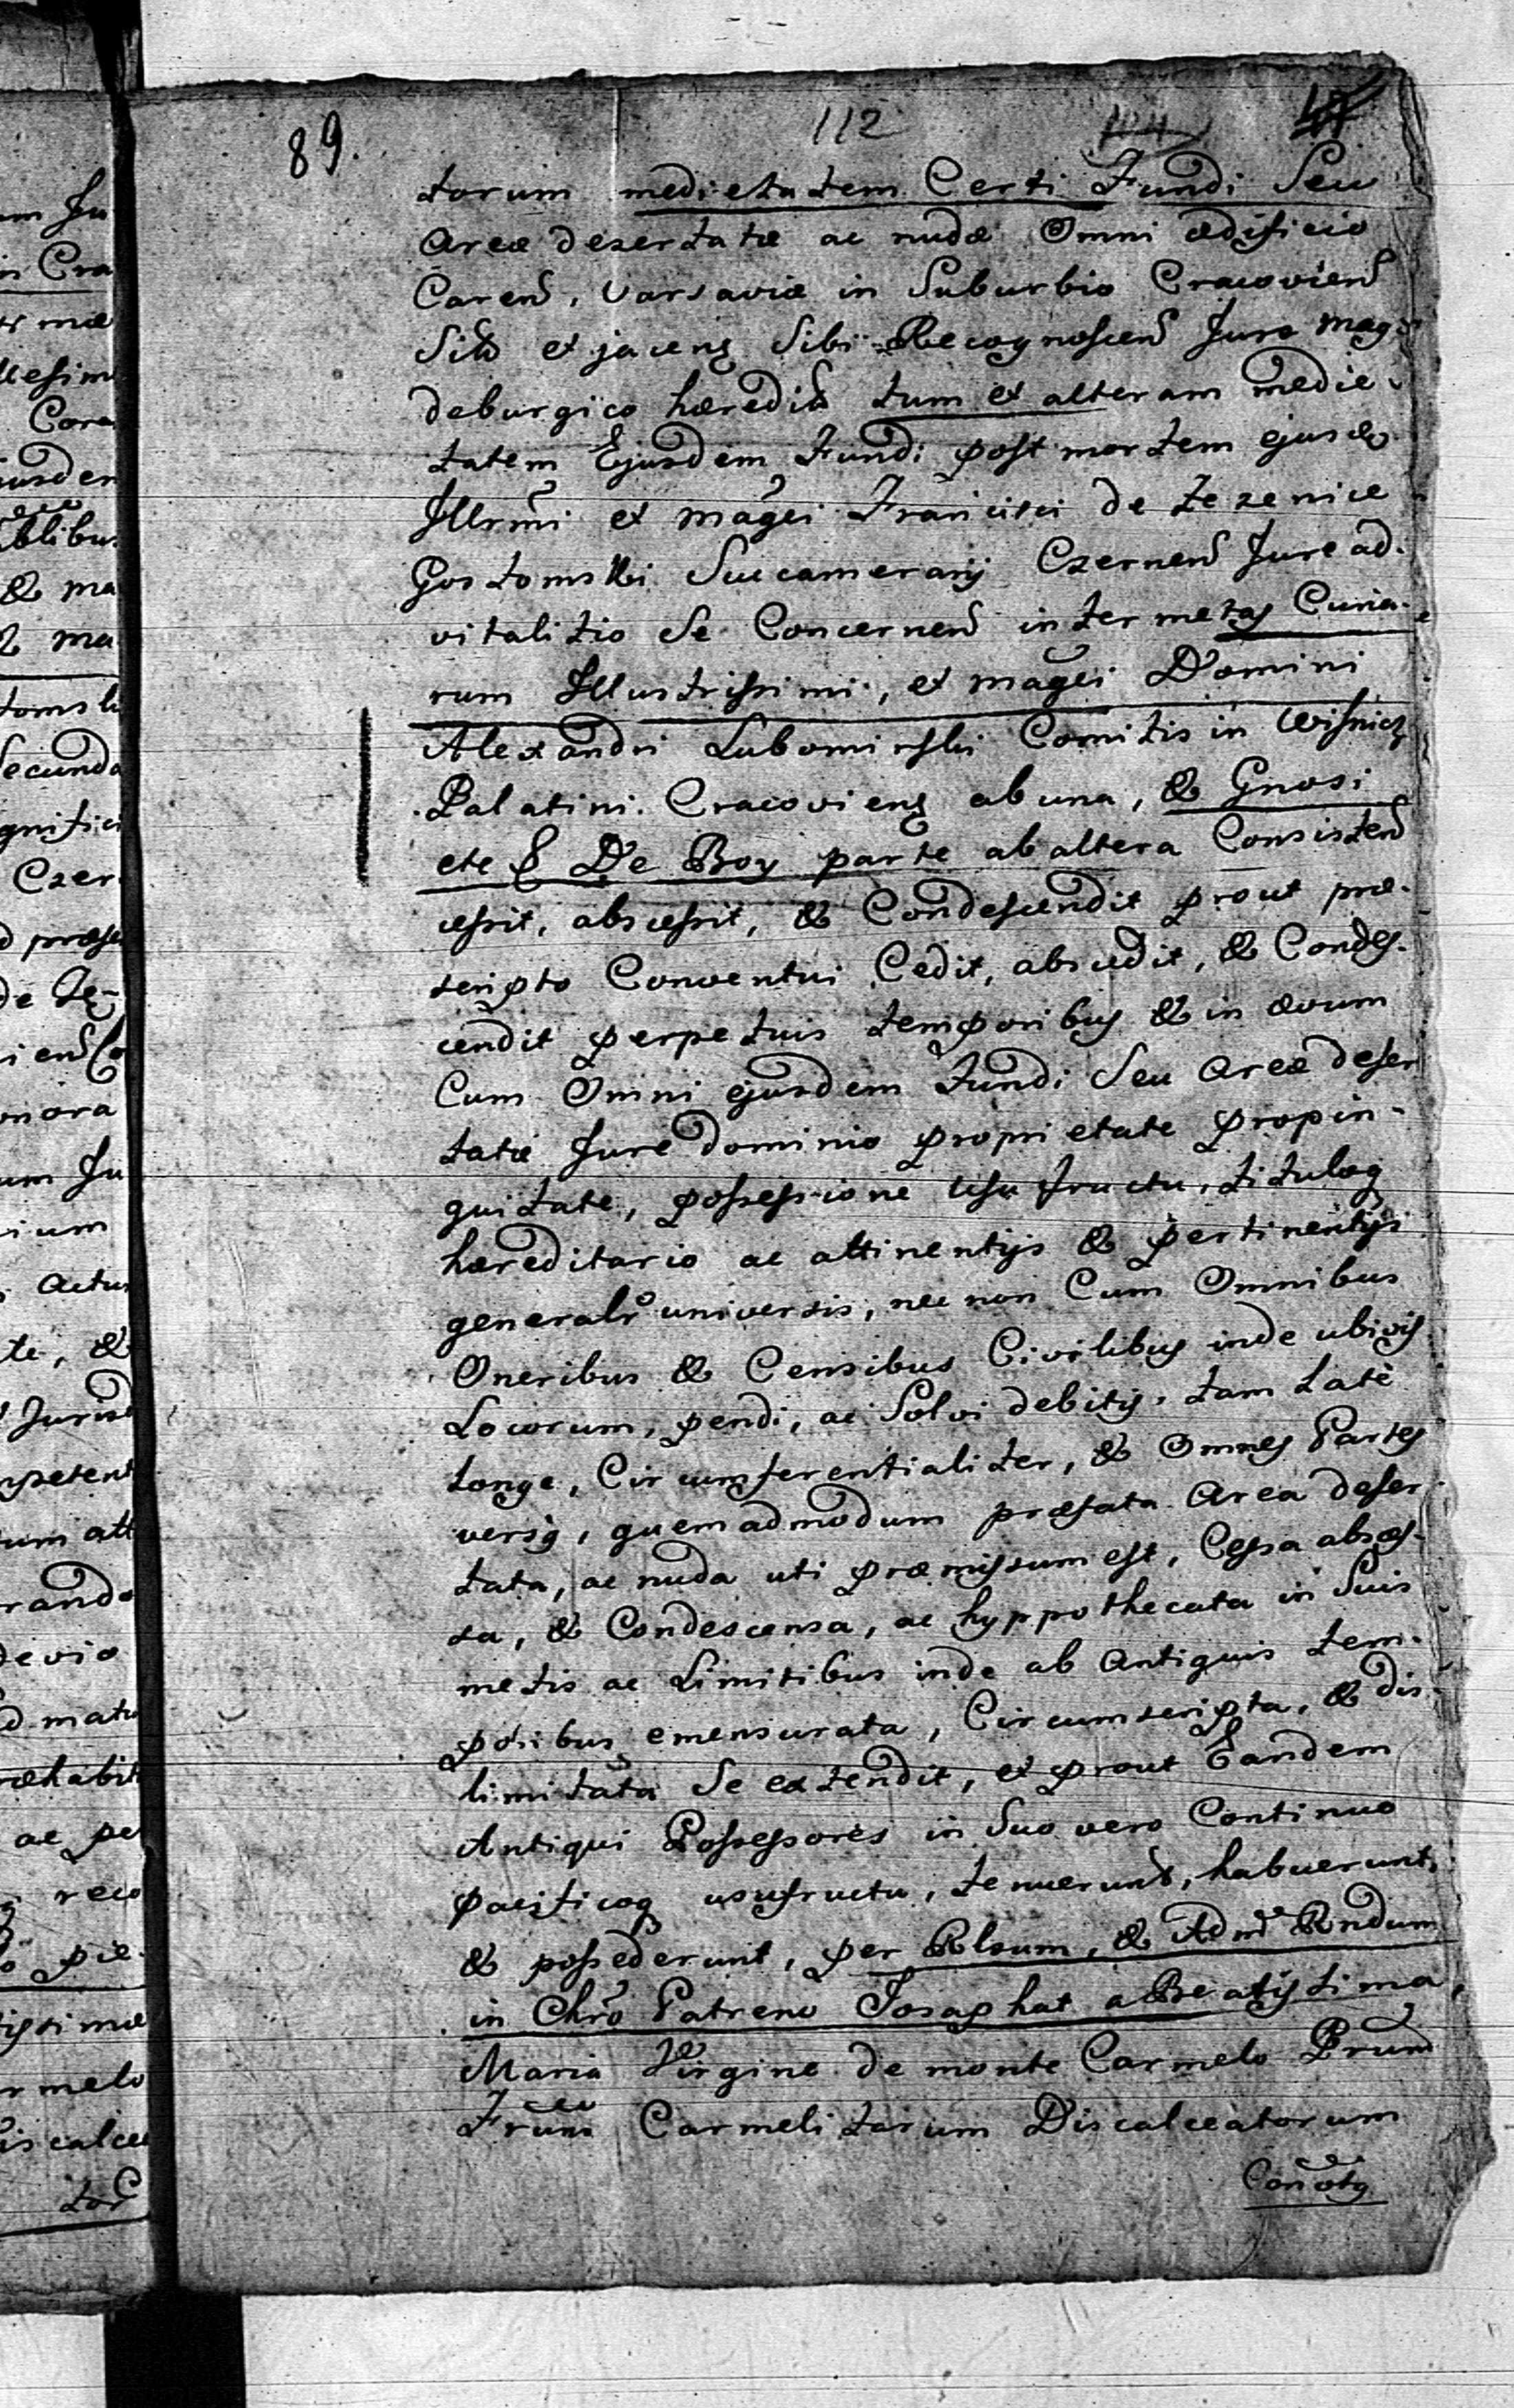 89.
112
torum medietatem Certi Fundi Seu
Areæ desertatæ ac nudæ Omni ædificio
Caren, Varsaviæ in Suburbio Cracovien
Sit et jaceng Sibi Recognoscen Jure Mag-
deburgico hæredit tum et alteram medie-
tatem Ejusdem Fundi post mortem ejusd
Illrmi et magci Francisci de Lezenice
Gostomski Succamerarij Czernen Jure ad-
vitalitio Se Concernen inter metas Curia-
rum Illustrissimi, et magci Domini
Alexandri Lubomirski Comitis in Wisnicz
Palatini Cracovieng ab una, & Gnosi
De Boy parte ab altera Consisten
cessit, abscessit, & Condescendit prout præ-
scripto Conventui Cedit, abscedit, & Condes-
cendit perpetuis temporibus & in ævum
Cum Omni ejusdem Fundi Seu Areæ deser
tatæ Jure dominio proprietate propin-
quitate, possessione Usu fructu, tituloq
hæreditario ac attinentijs & pertinentijs
generalr universis, nec non Cum Omnibus
Oneribus & Censibus Civilibus inde ubivis
Locorum, pendi, ac Solvi debitis, tam Latè
Longe, Circumferentialiter, & Omnes Partes
versq, quemadmodum præfata Area deser
tata, ac nuda uti præmissum est, Cessa absces-
sa, & Condescensa, ac hyppothecata in Suis
metis ac Limitibus inde ab Antiquis tem-
poribus emensurata, Circumscripta, & dis-
limitata Se extendit, et prout Eandem
Antiqui Possessores in Suo vero Continuo
pacificoq usufructu, tenuerunt, habuerunt,
& possederunt, per Rlsum, & Admd Rndum
in Chro Patrem Josaphat a Beatissima
Maria Virgine de monte Carmelo Prum
Frum Carmelitarum Discalceatorum